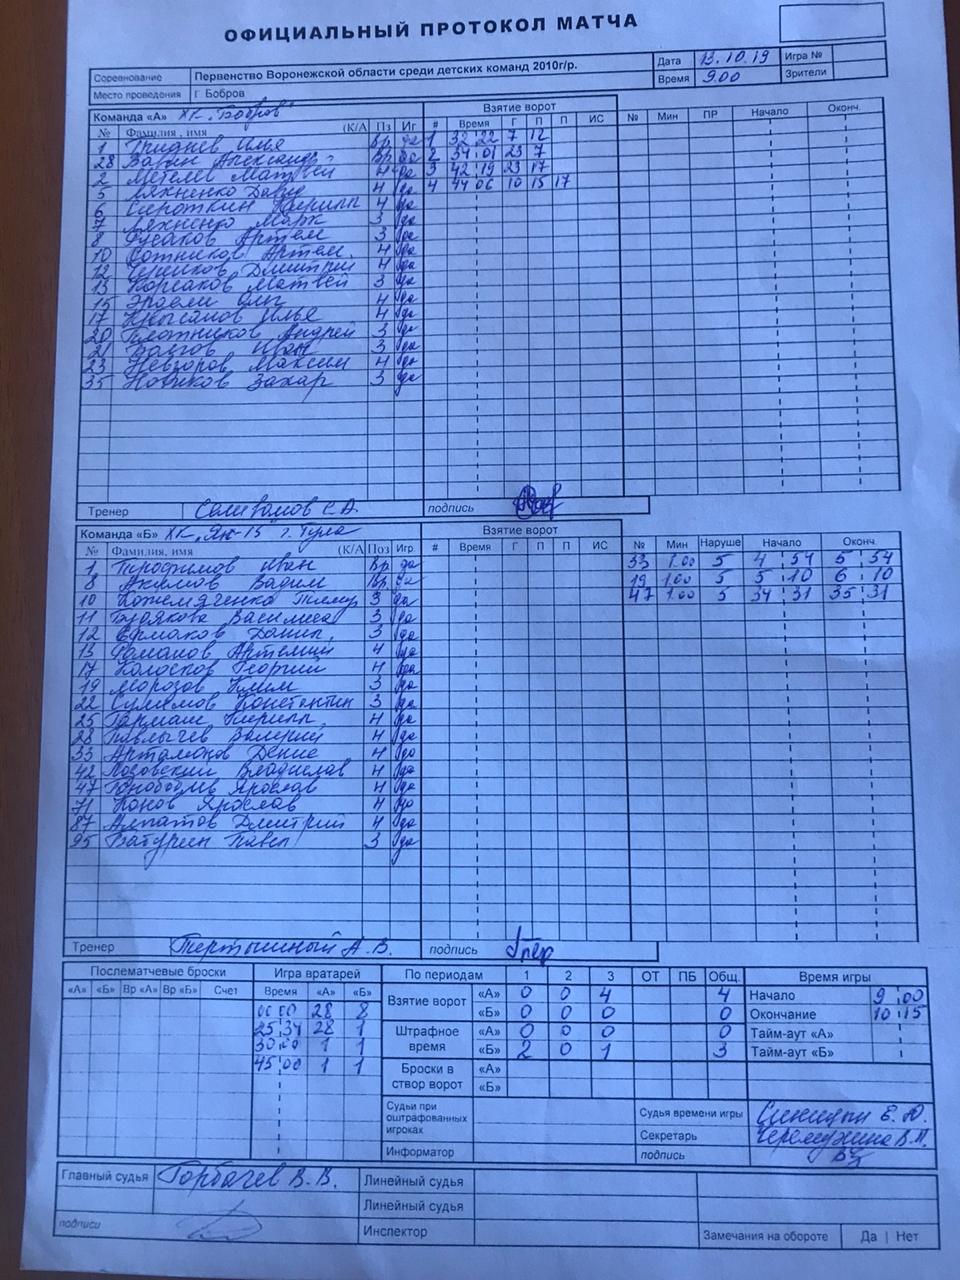 ОФИЦИАЛЬНЫЙ ПРОТОКОЛ МАТЧА
Соревнование Первенство Воронежской области среди детских команд 2010г/р. Дата 13.10.19 Игра №
Место проведения Г Бобров Время 9.00 Зрители
Команда «А» ХК "Бобров" Взятие ворот
№ Фамилия, имя (К/А Пз Иг # Время Г П П ИС № Мин ПР Начало Оконч.
1 Гриднев Илья Вр да 1 32 22 7 12
28 Вр да 2 34 01 23 7
2 Метелев Матвей Ч да 3 42 19 23 17
5 Ляхненко Давид Ч да 4 44 06 10 15 17
6 Сироткин Кирилл Ч да
7 Ляхненко Марк З да
8 Русаков Артем З да
10 Сотников Артем. Ч да
12 Дмитрий Ч да
13 Корсаков Матвей З да
15 Олег Ч да
17 Илья Ч да
20 Плотников Андрей З да
21 Иван З да
23 Невзоров Максим Ч да
35 Новиков Захар З да
Тренер Селиванов С.А. подпись
Команда «Б» ХК "Як-15" г. Тула Взятие ворот
№ Фамилия, имя (К/А Поз Игр # Время Г П П ИС № Мин Наруше Начало Оконч.
1 Трофимов Иван Вр да 33 1.00 5 4 54 5 54
8 Акимов Вадим Вр да 19 1.00 5 5 10 6 10
10 Кожемяченко Тимур З да 47 1.00 5 34 31 35 31
11 Василиса З да
12 Ермаков Данил. З да
13 Романов Артемий Ч да
17 Колосков Георгий Ч да
19 Морозов Клим З да
22 Константин З да
25 Гармаш Кирилл Ч да
28 Павлычев Валерий Ч да
33 Артамонов Денис Ч да
42 Лозовский Владислав Ч да
47 Ярослав Ч да
71 Конов Ярослав Ч да
87 Алпатов Дмитрий Ч да
95 Батурин Павел З да
Тренер Тертышный А.В. подпись
Послематчевые броски Игра вратарей По периодам 1 2 3 ОТ ПБ Общ. Время игры
«А» «Б» Вр «А» Вр «Б» Счет Время «А» «Б» Взятие ворот «А» 0 0 4 4 Начало 9 00
00 00 28 8 «Б» 0 0 0 0 Окончание 10 15
25 34 28 1 Штрафное время «А» 0 0 0 0 Тайм-аут «А»
30 00 1 1 «Б» 2 0 1 3 Тайм-аут «Б»
45 00 1 1 Броски в створ ворот «А»
«Б»
Судьи при оштрафованных игроках Судья времени игры Синицын Е.Ю.
Секретарь Черемухина В.П.
Информатор подпись
Главный судья Горбачев В.В. Линейный судья
Линейный судья
подписи Инспектор Замечания на обороте Да Нет